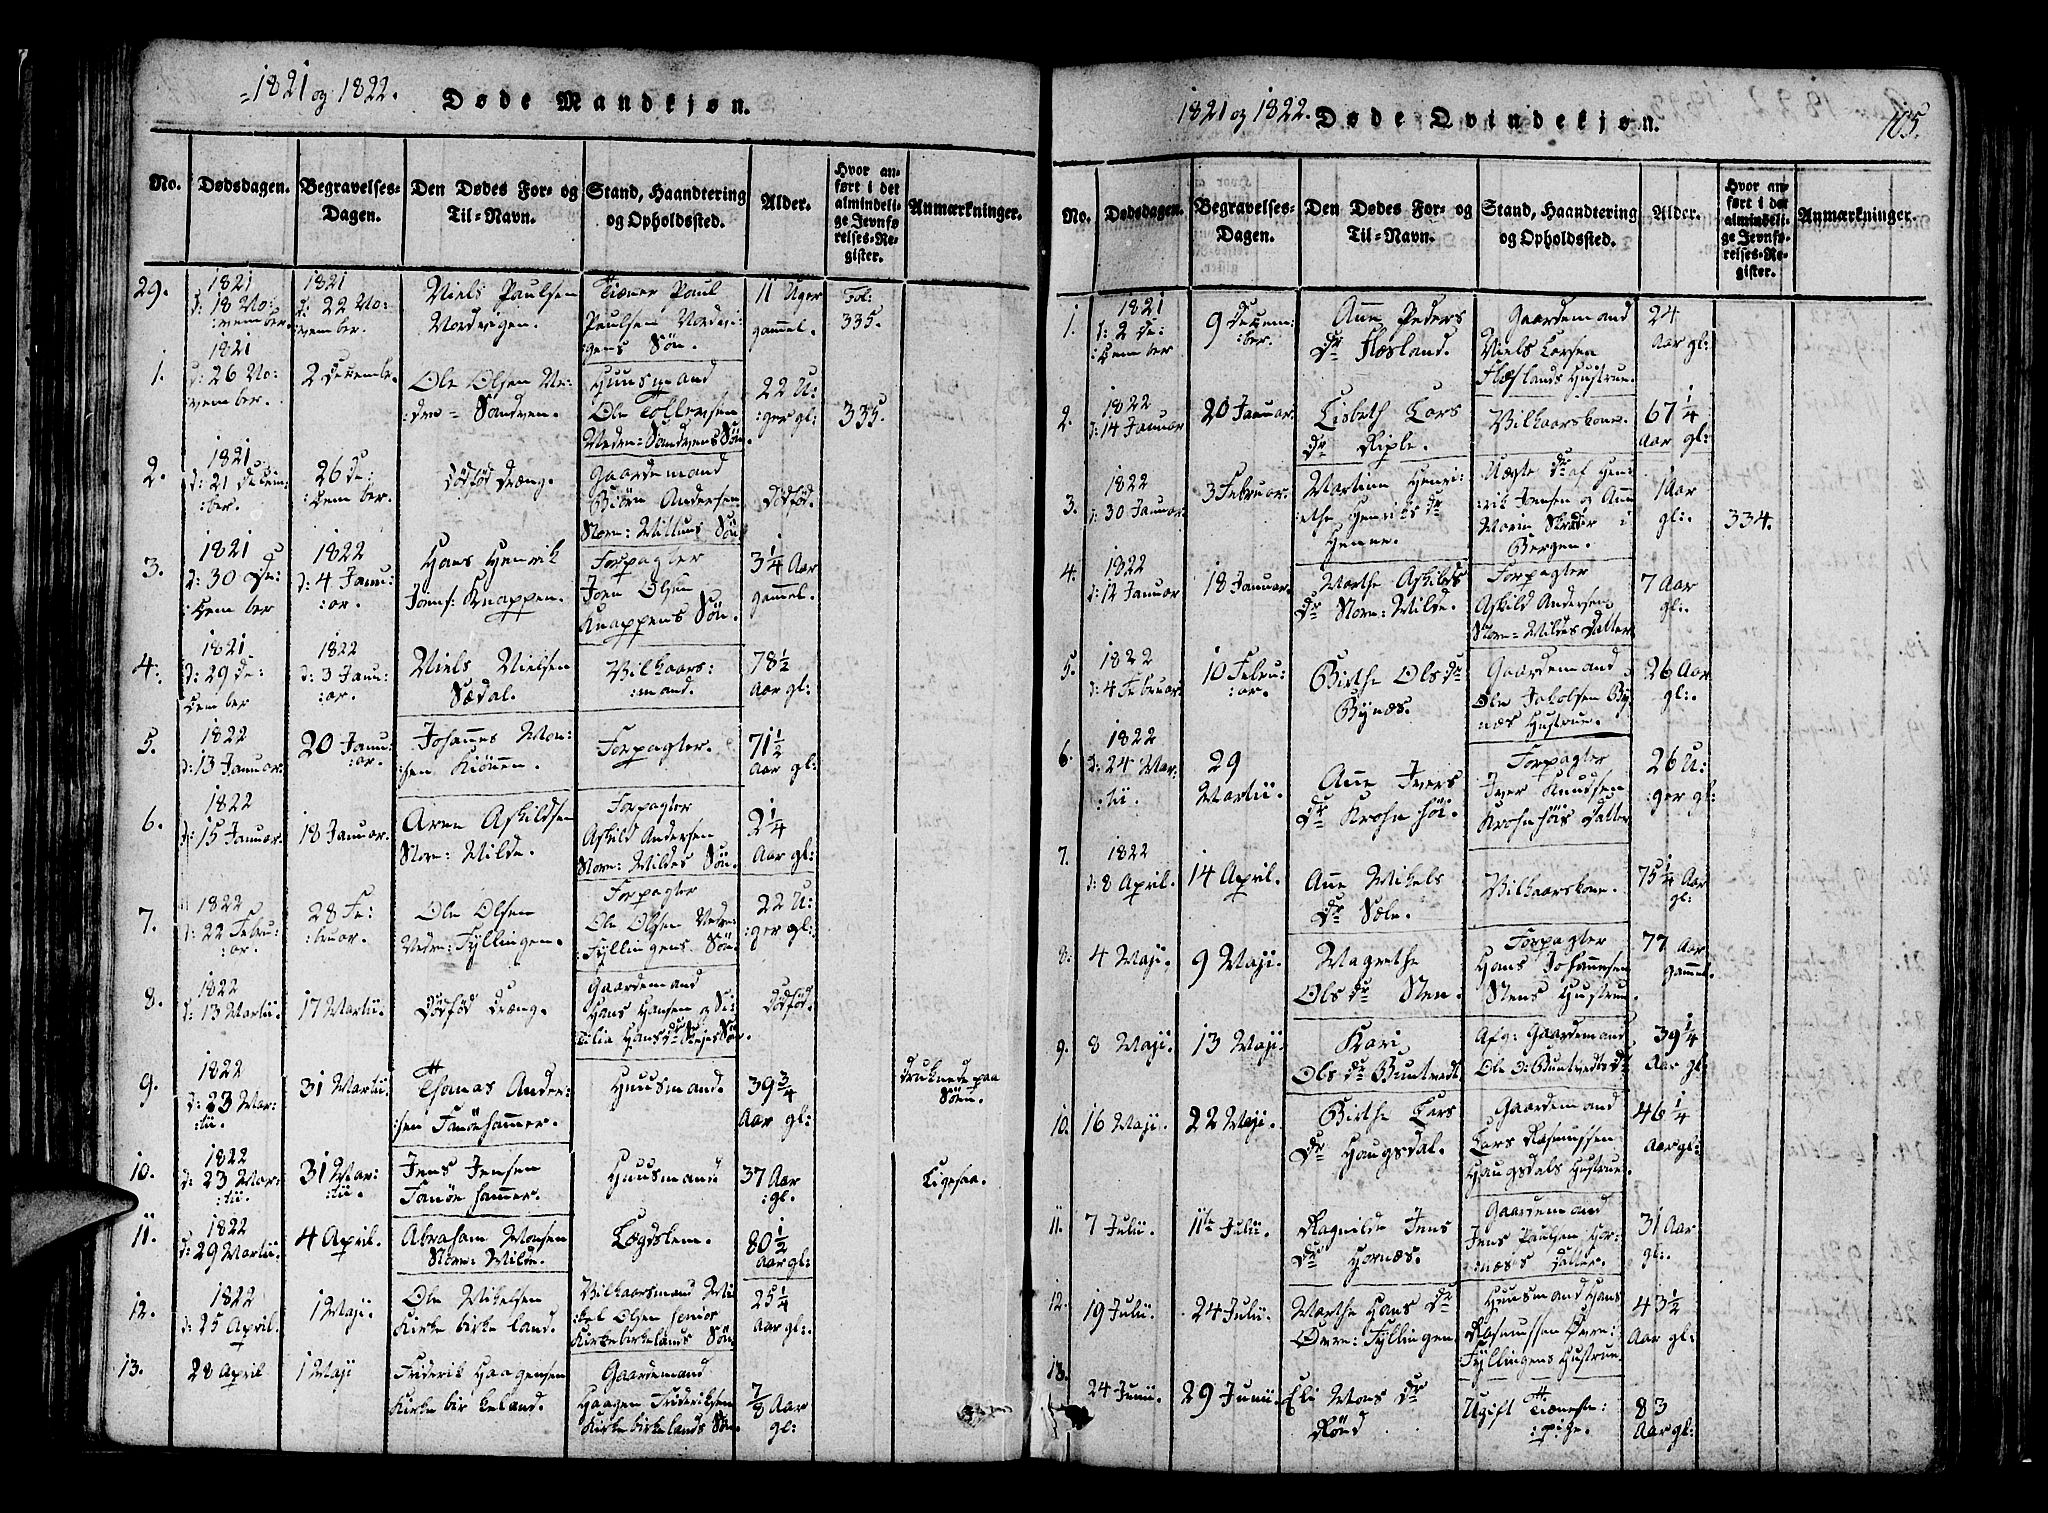 1821 og 1822. Døde Mandkjøn.
No. Dødsdagen. Begravelses-Dagen. Den Dødes For- og Til-Navn. Stand, Haandtering og Opholdssted. Alder. Hvor anført i det almindelige Jevnførelses-Register. Anmærkninger.
29. 1821 d: 18 November. 1821 d: 22 November. Niels Paulsen Nordvigen. Tiener Paul Paulsen Nordvigens Søn. 11 Uger gammel. Fol: 335.
1. 1821 d: 26 November. 2 Decembr. Ole Olsen Nedre-Sandven. Huusmand Ole Tollevsen Nedre-Sandvens Søn. 22 Uger gl: 335.
2. 1821 d: 21 December. 26 December. Dødfød Dræng. Gaardemand Biørn Andersen Store-Mildes Søn. Dødfød.
3. 1821 d: 30 December 1822 d: 4 Januar. Hans Henrik Joens: Knappen. Forpagter Joen Olsen Knappens Søn. 3 1/4 Aar gammel.
4. 1821 d: 29 December 1822 d: 3 Januar. Niels Nielsen Sædal. Vilkaarsmand. 78 1/2 Aar gl:
5. 1822 d: 13 Januar. 20 Januar. Johannes Monsen Kiønen. Forpagter. 71 1/2 Aar gl:
6. 1822 d: 15 Januar. 18 Januar. Arne Askildsen Store-Milde. Forpagter Askild Andersen Store-Mildes Søn. 2 1/4 Aar gl:
7. 1822 d: 22 Februar. 28 Februar. Ole Olsen Nedre-Fyllingen. Forpagter Ole Olsen Nedre-Fyllingens Søn. 22 Uger gl:
8. 1822 d: 13 Martii. 17 Martii. Dødfød Dræng. Gaardemand Hans Hansen og Sitilia Hans Dr Søn. Dødfød.
9. 1822 d: 23 Martii. 31 Martii. Thomas Andersen Fanøehammer. Huusmand. 39 3/4 Aar gl: Druknede paa Søen.
10. 1822 d: 23 Martii. 31 Martii. Jens Jensen Fanøehammer. Huusmand 37 Aar gl. Ligesaa.
11. 1822 d: 29 Martii. 4 April. Abraham Monsen Store-Milde. Lægdslem. 80 1/2 Aar gl:
12. 1822 d: 25 April. 1 Maji. Ole Mikelsen Kirkebirkeland. Vilkaarsmand Mikel Olsen senior Kirkebirkelands Søn. 25 1/4 Aar gl:
13. 28 April 1 Maji Friderik Haagensen Kirkebirkeland. Gaardemand Haagen Frideriksen Kirkebirkelands Søn. 7/8 Aar gl:
1821 og 1822. Døde Qvindekjøn. 105.
No. Dødsdagen. Begravelses-Dagen. Den Dødes For- og Til-Navn. Stand, Haandtering og Opholdssted. Alder. Hvor anført i det almindelige Jevnførelses-Register. Anmærkninger.
1. 1821 d: 2 December 9 December. Anne Peders Dr Flæsland. Gaardemand Niels Larsen Flæslands Hustrue. 24 Aar gl:
2. 1822 d: 14 Januar 20 Januar. Lisbeth Lars Dr Riple. Vilkaarskone. 67 1/4 Aar gl:
3. 1822 d: 30 Januar. 3 Februar. Martine Henriethe Henriks Dr Uægte Dr af Henrik Jensen og Anne Marie i Bergen. 1 Aar gl: 334.
4. 1822 d: 12 Januar 18 Januar. Marthe Askilds Dr Store-Milde. Forpagter Askild Andersens Store-Mildes Datter. 7 Aar gl:
5. 1822 d: 4 Februar. 10 Februar. Birthe Ols Dr Bynæs. Gaardemand Ole Jakobsen Bynæs Hustrue. 26 Aar gl:
6. 1822 d: 24 Martii. 29 Martii. Anne Ivers Dr Krohnhøi. Forpagter Iver Knudsen Krohnhøis Datter. 26 Uger gl:
7. 1822 d: 8 April. 14 April. Anne Mikels Dr Sæle. Vilkaarskone. 75 1/4 Aar gl:
8. 4 Maji. 9 Maji. Magrethe Ols Dr Steen. Forpagter Hans Johannesen Stens Hustrue. 77 Aar gammel.
9. 8 Maji. 13 Maji. Kari Ols Dr Buntvedt. Afg: Gaardemand Ole O: Buntvedts Dr 39 1/4 Aar gl.
10. 16 Maji. 22 Maji. Birthe Lars Dr Haugsdal. Gaardemand Lars Rasmussen Haugsdals Hustrue. 46 1/4 Aar gl:
11. 7 Julii. 11te Julii. Ragnilde Jens Dr Hornæs. Gaardemand Jens Paulsen Hornæs's Datter. 31 Aar gl:
12. 19 Julii. 24 Julii. Marthe Hans Dr Øvre-Fyllingen Huusmand Hans Rasmussen Øvre-Fyllingens Hustrue. 43 1/2 Aar gl:
13. 24 Junii. 29 Junii. Eli Mons Dr Rønd Ugift Tienestepige. 83 Aar gl: